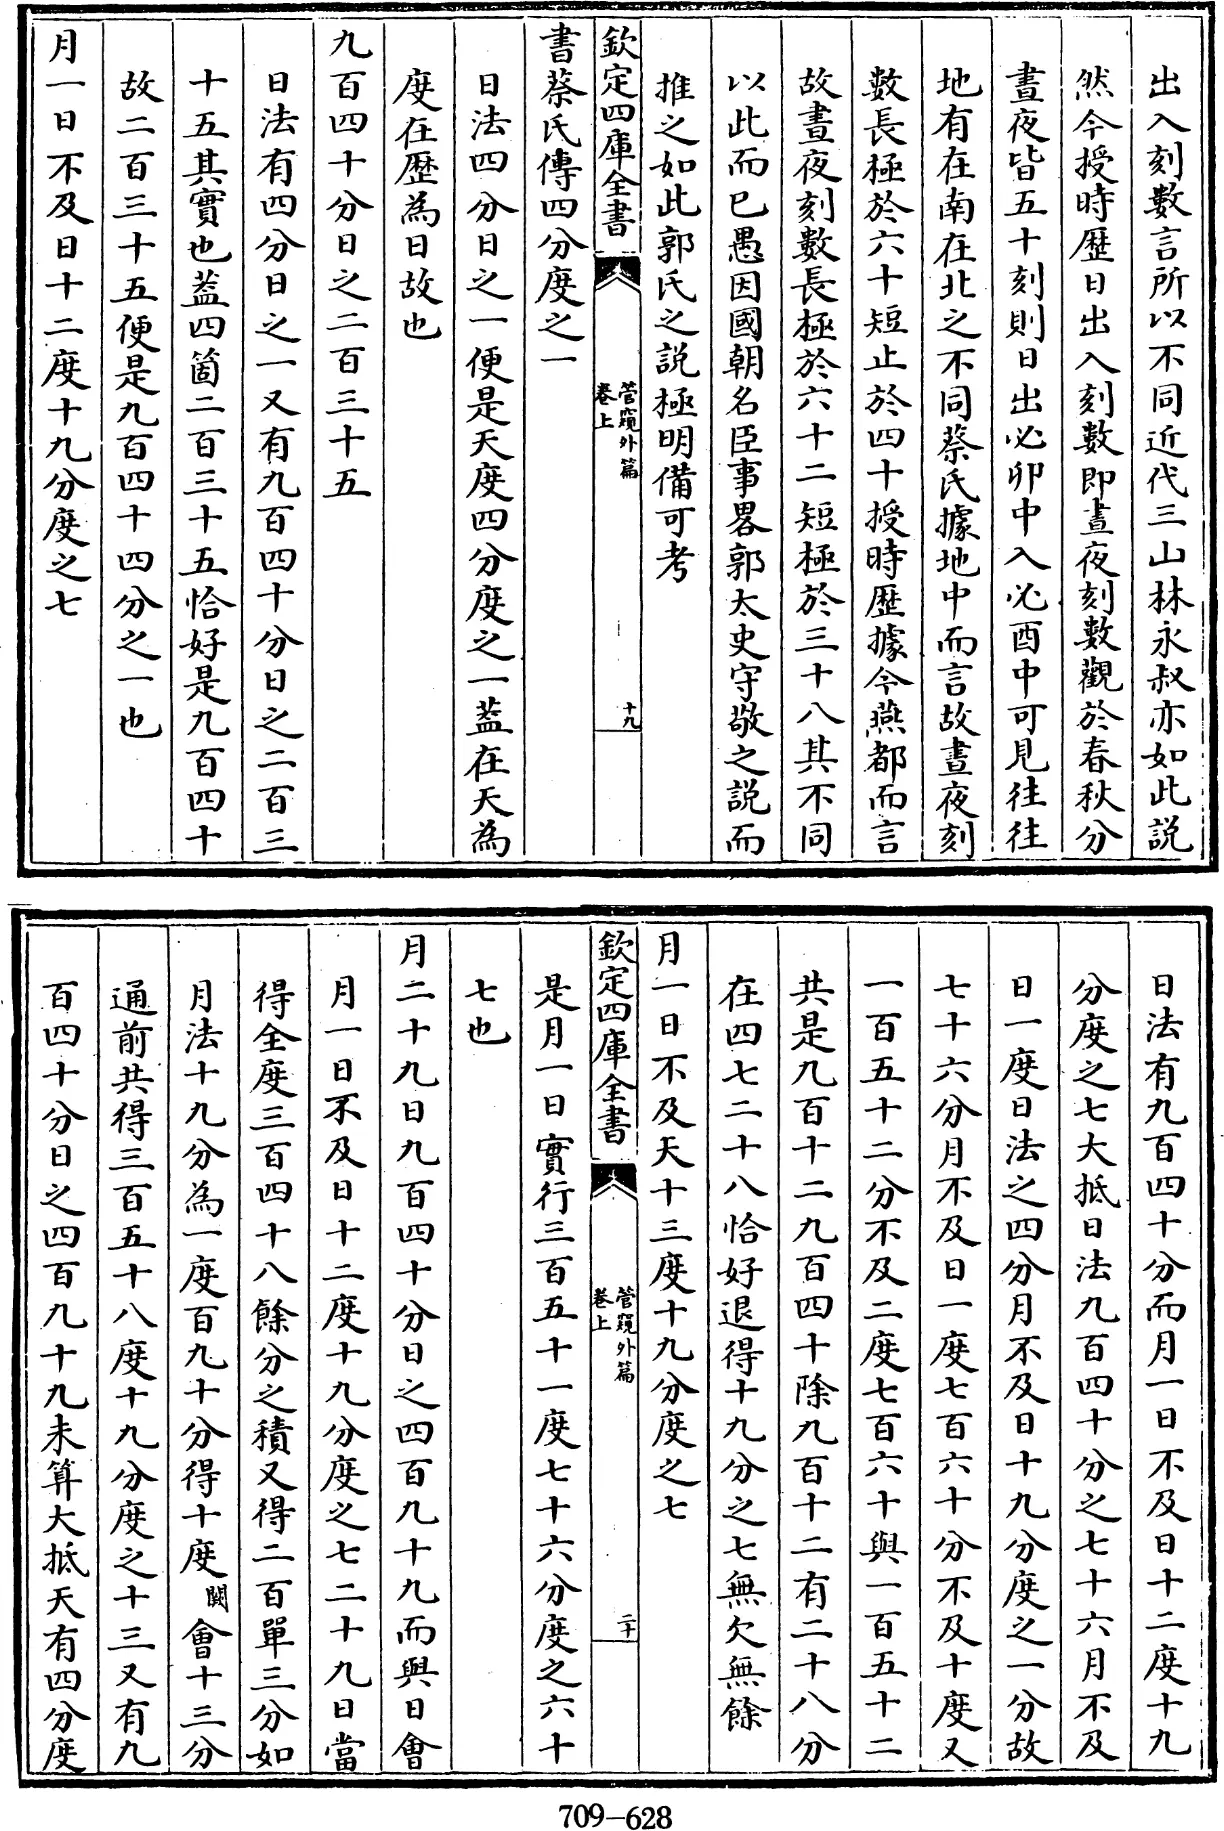 出入刻數言所以不同近代三山林永叔亦如此説
然今授時歴日出入刻數即晝夜刻數觀於春秋分
晝夜皆五十刻則日出必卯中入必酉中可見往往
地有在南在北之不同蔡氏據地中而言故晝夜刻
數長極於六十短止於四十授時歴據今燕都而言
故晝夜刻數長極於六十二短極於三十八其不同
以此而已愚因國朝名臣事畧郭太史守敬之説而
推之如此郭氏之説極明備可考
欽定四庫全書
管窺外篇
卷上
十九
書蔡氏傳四分度之一
日法四分日之一便是天度四分度之一葢在天為
度在歴為日故也
九百四十分日之二百三十五
日法有四分日之一又有九百四十分日之二百三
十五其實也葢四箇二百三十五恰好是九百四十
故二百三十五便是九百四十四分之一也
月一日不及日十二度十九分度之七
日法有九百四十分而月一日不及日十二度十九
分度之七大抵日法九百四十分之七十六月不及
日一度日法之四分月不及日十九分度之一分故
七十六分月不及日一度七百六十分不及十度又
一百五十二分不及二度七百六十與一百五十二
共是九百十二九百四十除九百十二有二十八分
在四七二十八恰好退得十九分之七無欠無餘
月一日不及天十三度十九分度之七
欽定四庫全書
管窺外篇
卷上
二十
是月一日實行三百五十一度七十六分度之六十
七也
月二十九日九百四十分日之四百九十九而與日會
月一日不及日十二度十九分度之七二十九日當
得全度三百四十八餘分之積又得二百單三分如
月法十九分為一度百九十分得十度闕會十三分
通前共得三百五十八度十九分度之十三又有九
百四十分日之四百九十九未算大抵天有四分度
709-628